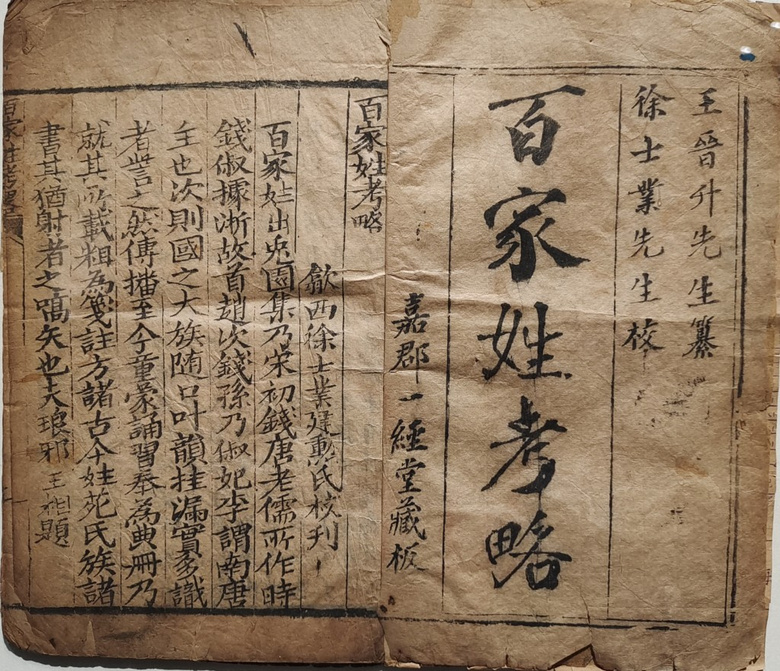 王晉升先生纂
徐士業先生校
百家姓考略
嘉郡一經堂藏板
百家姓考略
歙西徐士業建勳氏校刊
百家姓出兎園集乃宋初錢唐老儒所作時
錢俶據浙故首趙次錢孫乃俶妃李謂南唐
主也次則國之大族随口叶韻挂漏實多識
者訾之然傳播至今童蒙誦習奉為典冊乃
就其所載粗為箋註方諸古今姓苑氏族諸
書其猶射者之嚆矢也夫琅邪王相題
百家姓考畧